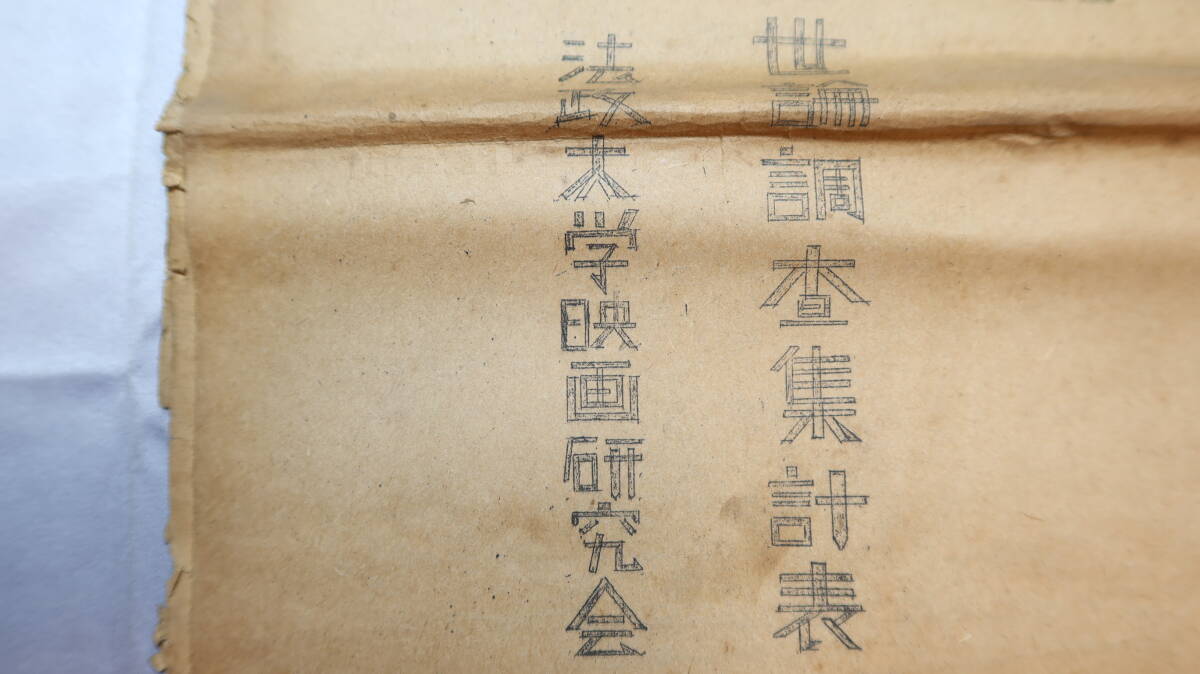 世論調査集計表
法政大学映画研究会